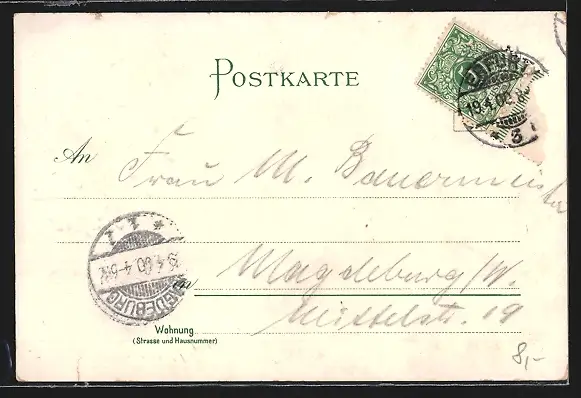 POSTKARTE
ERFURT
19.4.00
3
An
Frau M. Bauermeister
MAGDEBURG
4.00 4-5
in Magdeburg/W.
Mittelstr. 19
Wohnung
(Strasse und Hausnummer)
8,-